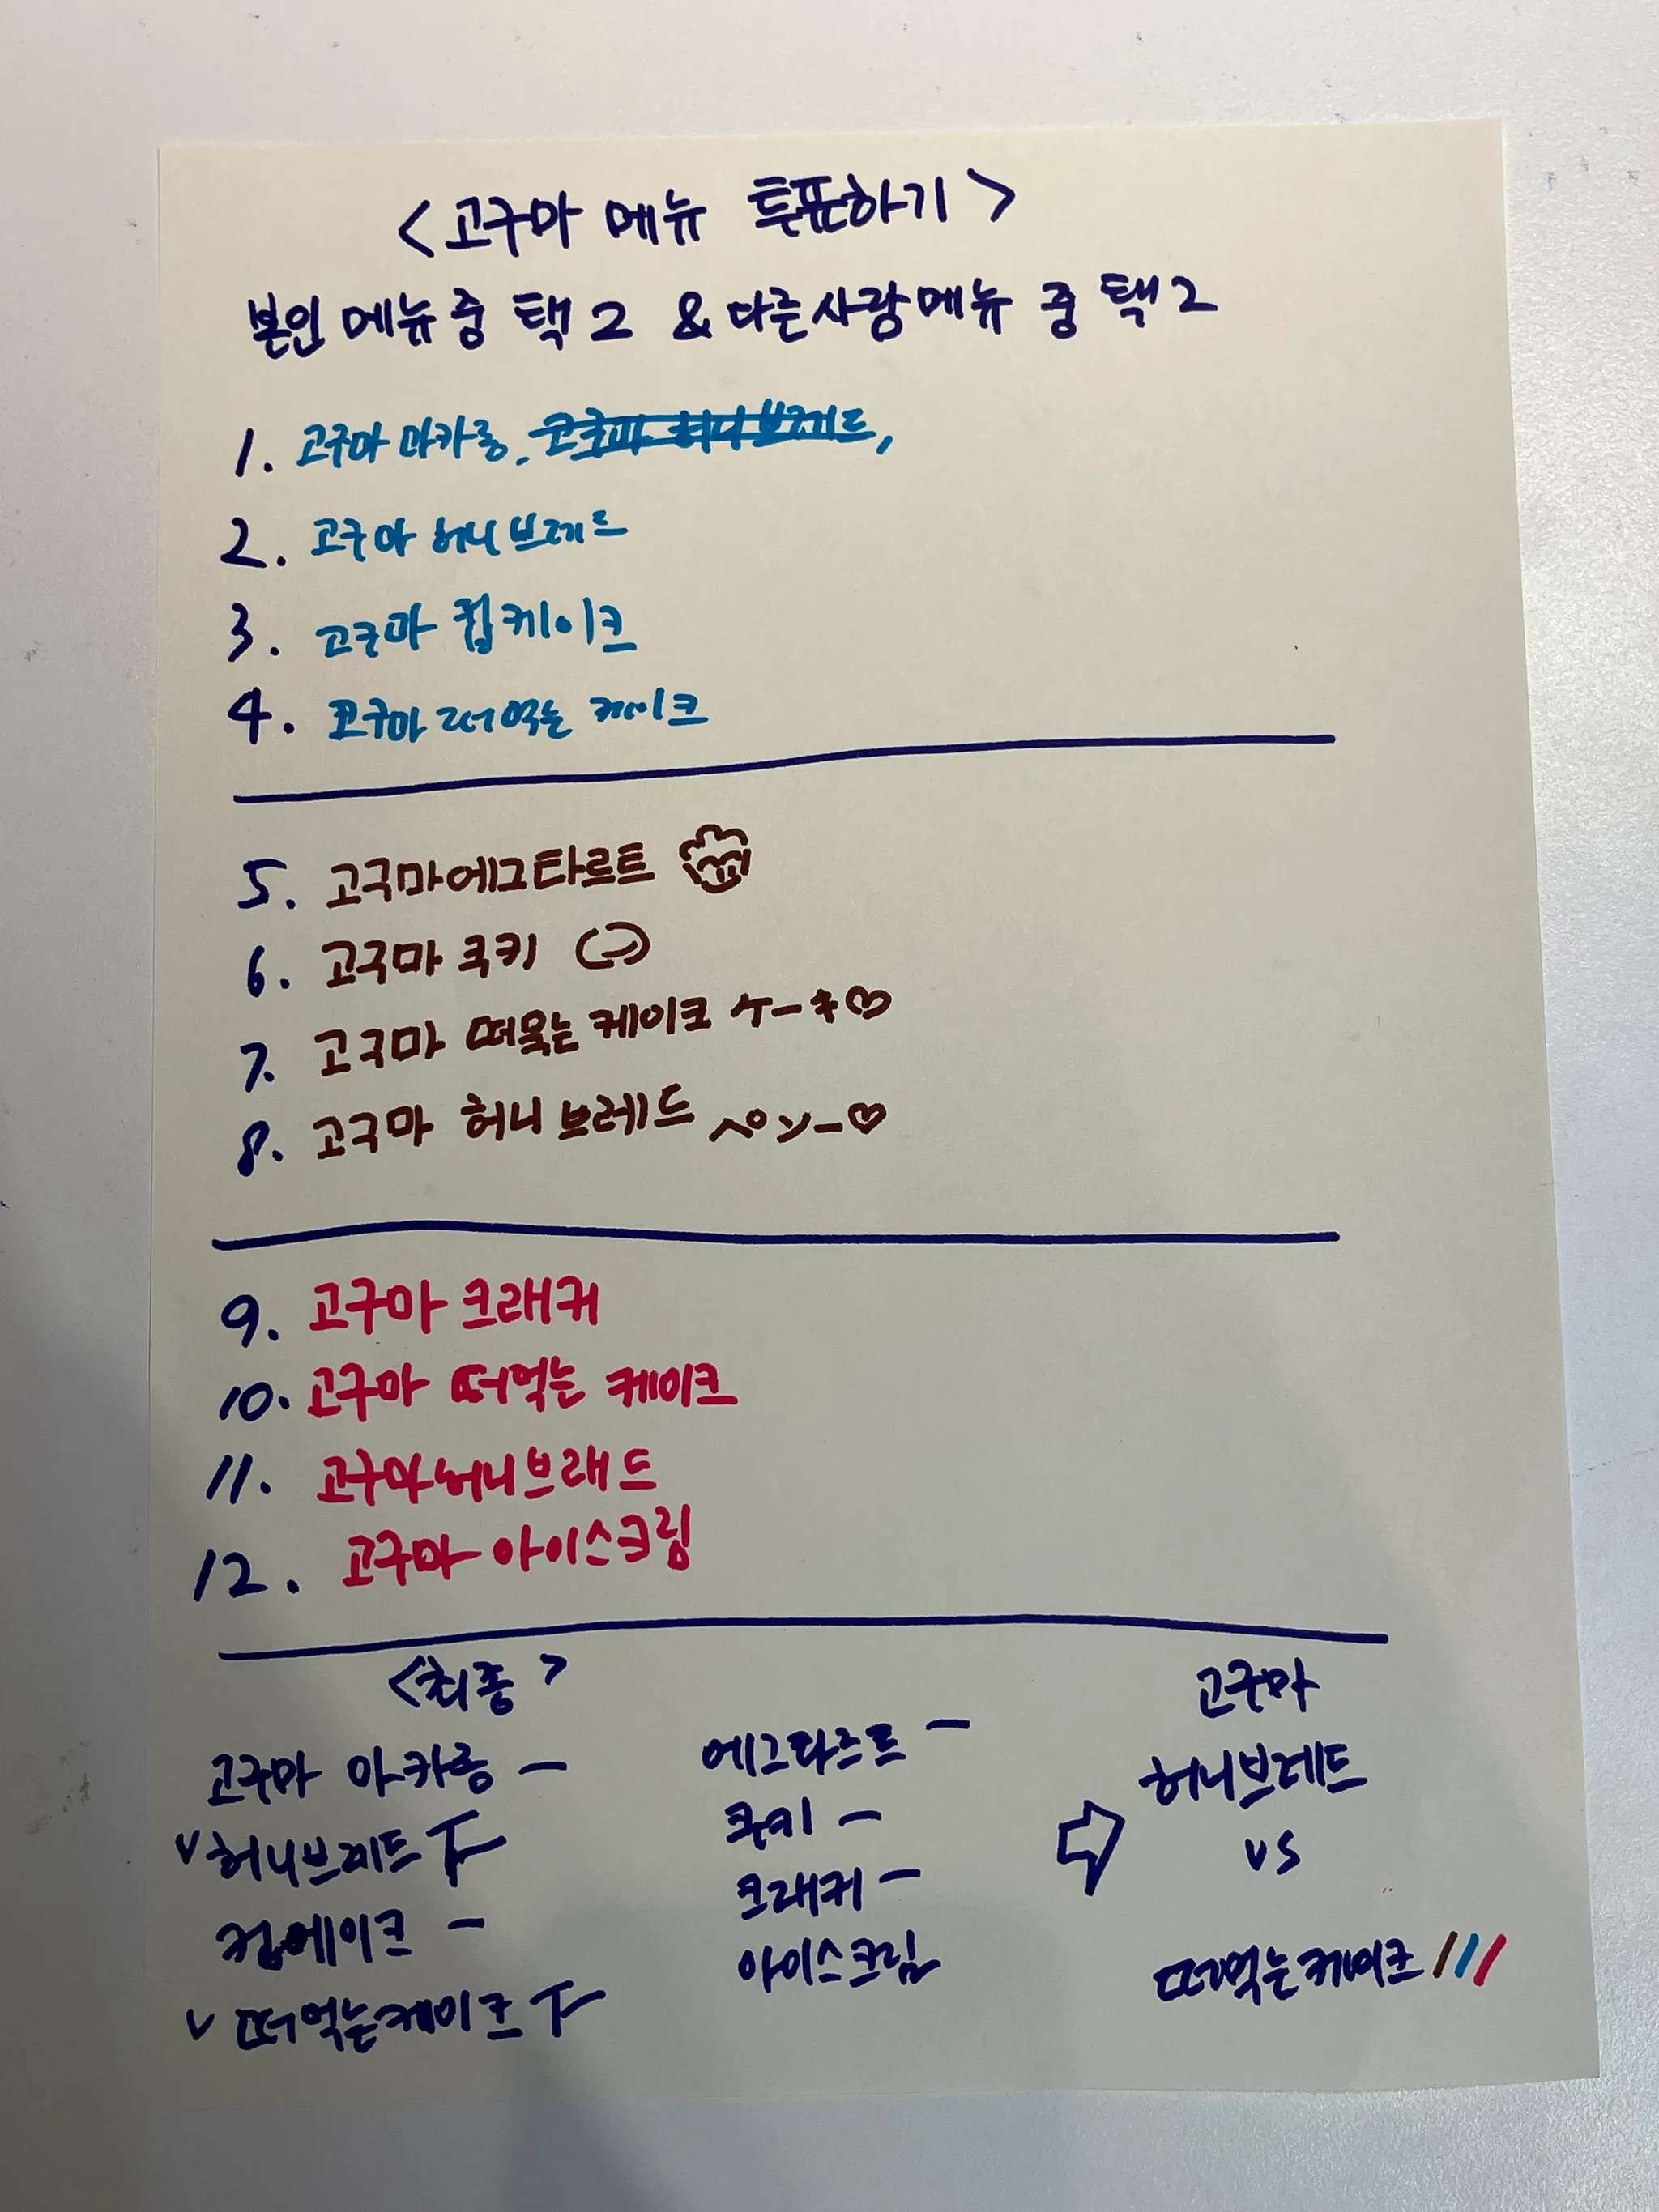 <고구마 메뉴 투표하기>
본인 메뉴 중 택2 & 다른사람메뉴 중 택2
1. 고구마 마카롱. 고구마 허니브레드,
2. 고구마 허니브레드
3. 고구마 컵케이크
4. 고구마 떠먹는 케이크
5. 고구마에그타르트
6. 고구마 쿠키
7. 고구마 떠먹는케이크 ケーキ♡
8. 고구마 허니브레드 ペンー♡
9. 고구마 크래커
10. 고구마 떠먹는 케이크
11. 고구마허니브래드
12. 고구마 아이스크림
<최종>
고구마 마카롱 一
✓허니브레드 下
컵케이크 一
✓ 떠먹는케이크 下
에그타르트 一
쿠키 一
크래커 一
아이스크림
⇨
고구마
허니브레드
vs
떠먹는케이크 ///